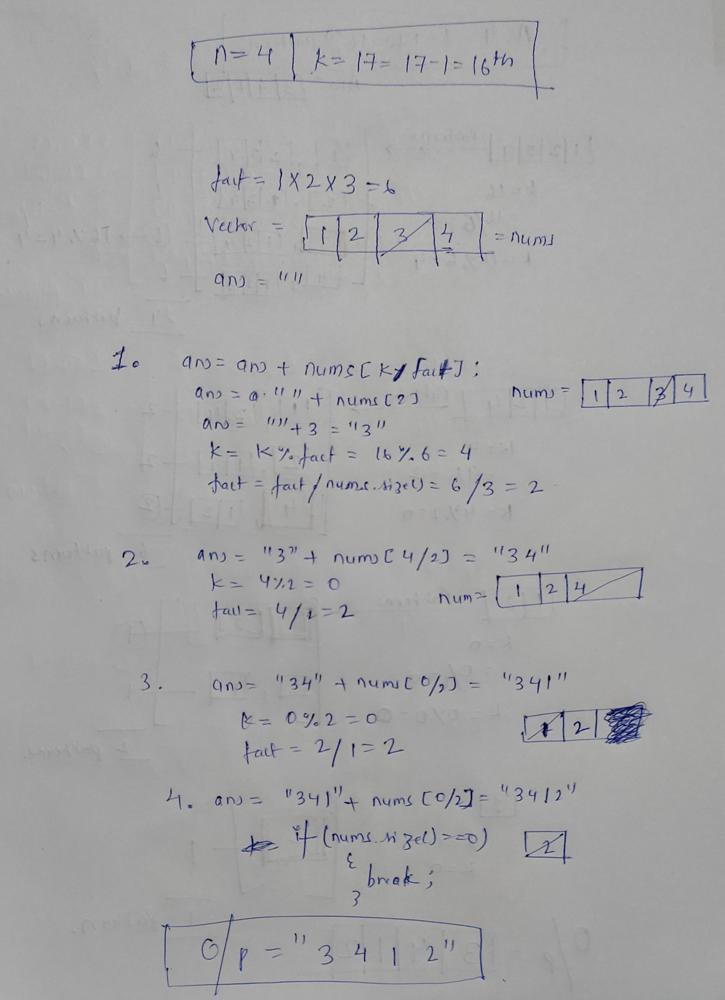 n=4 | k=17=17-1=16th
fact = 1x2x3=6
Vector = 1 2 3 4 = nums
ans = ""
1. ans= ans + nums[k/fact];
ans = "" + nums[2]
nums = 1 2 3 4
ans = ""+3 = "3"
k = k%fact = 16%6 = 4
fact = fact/nums.size() = 6/3 = 2
2. ans = "3" + nums[4/2] = "34"
k = 4%2 = 0
num= 1 2 4
fact= 4/2=2
3. ans= "34" + nums[0/2] = "341"
k = 0%2=0
1 2
fact = 2/1=2
4. ans= "341"+ nums[0/2]= "3412"
if(nums.size()==0)
2
{
break;
}
O/p = "3 4 1 2"